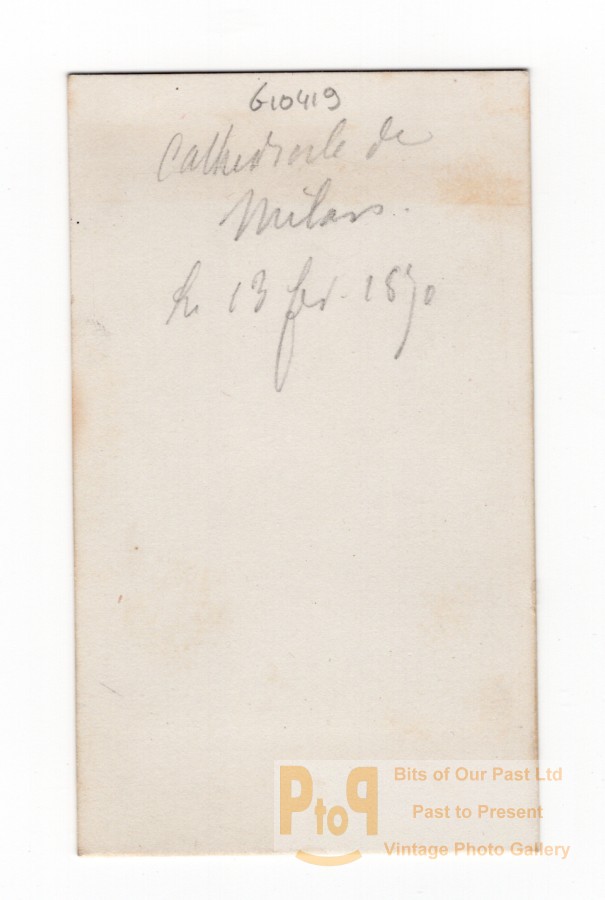 G10419
Cathedrale de
Milan.
le 13 fev. 1870
PtoP
Bits of Our Past Ltd
Past to Present
Vintage Photo Gallery